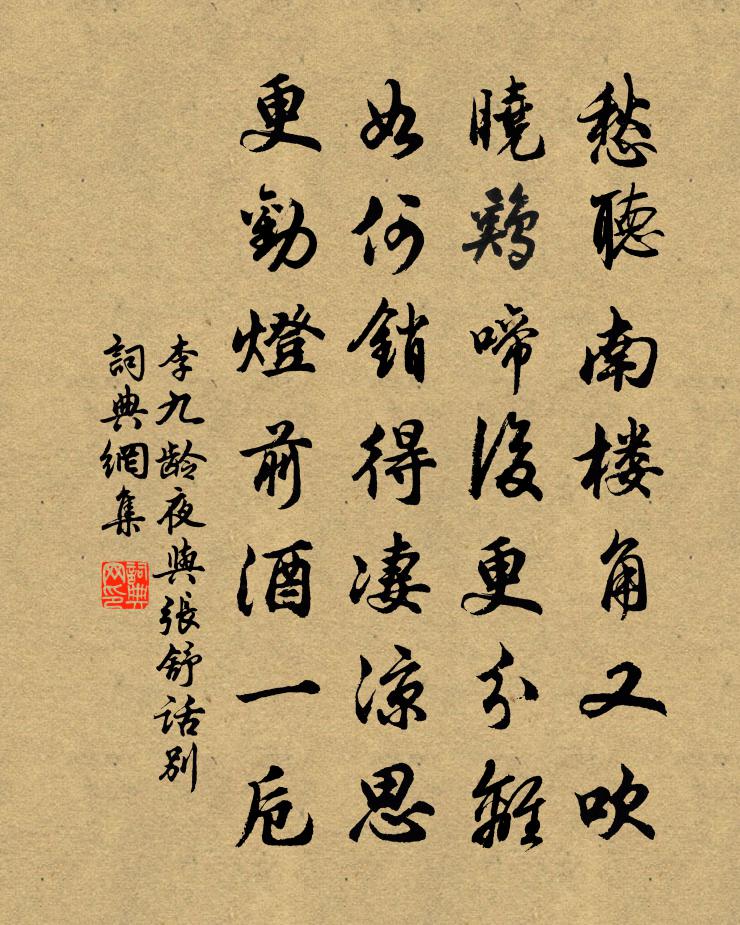 愁聽南楼角又吹
曉鷄啼後更分離
如何銷得凄凉思
更勸燈前酒一卮
李九龄夜與張舒话别
詞典網集
詞典网印